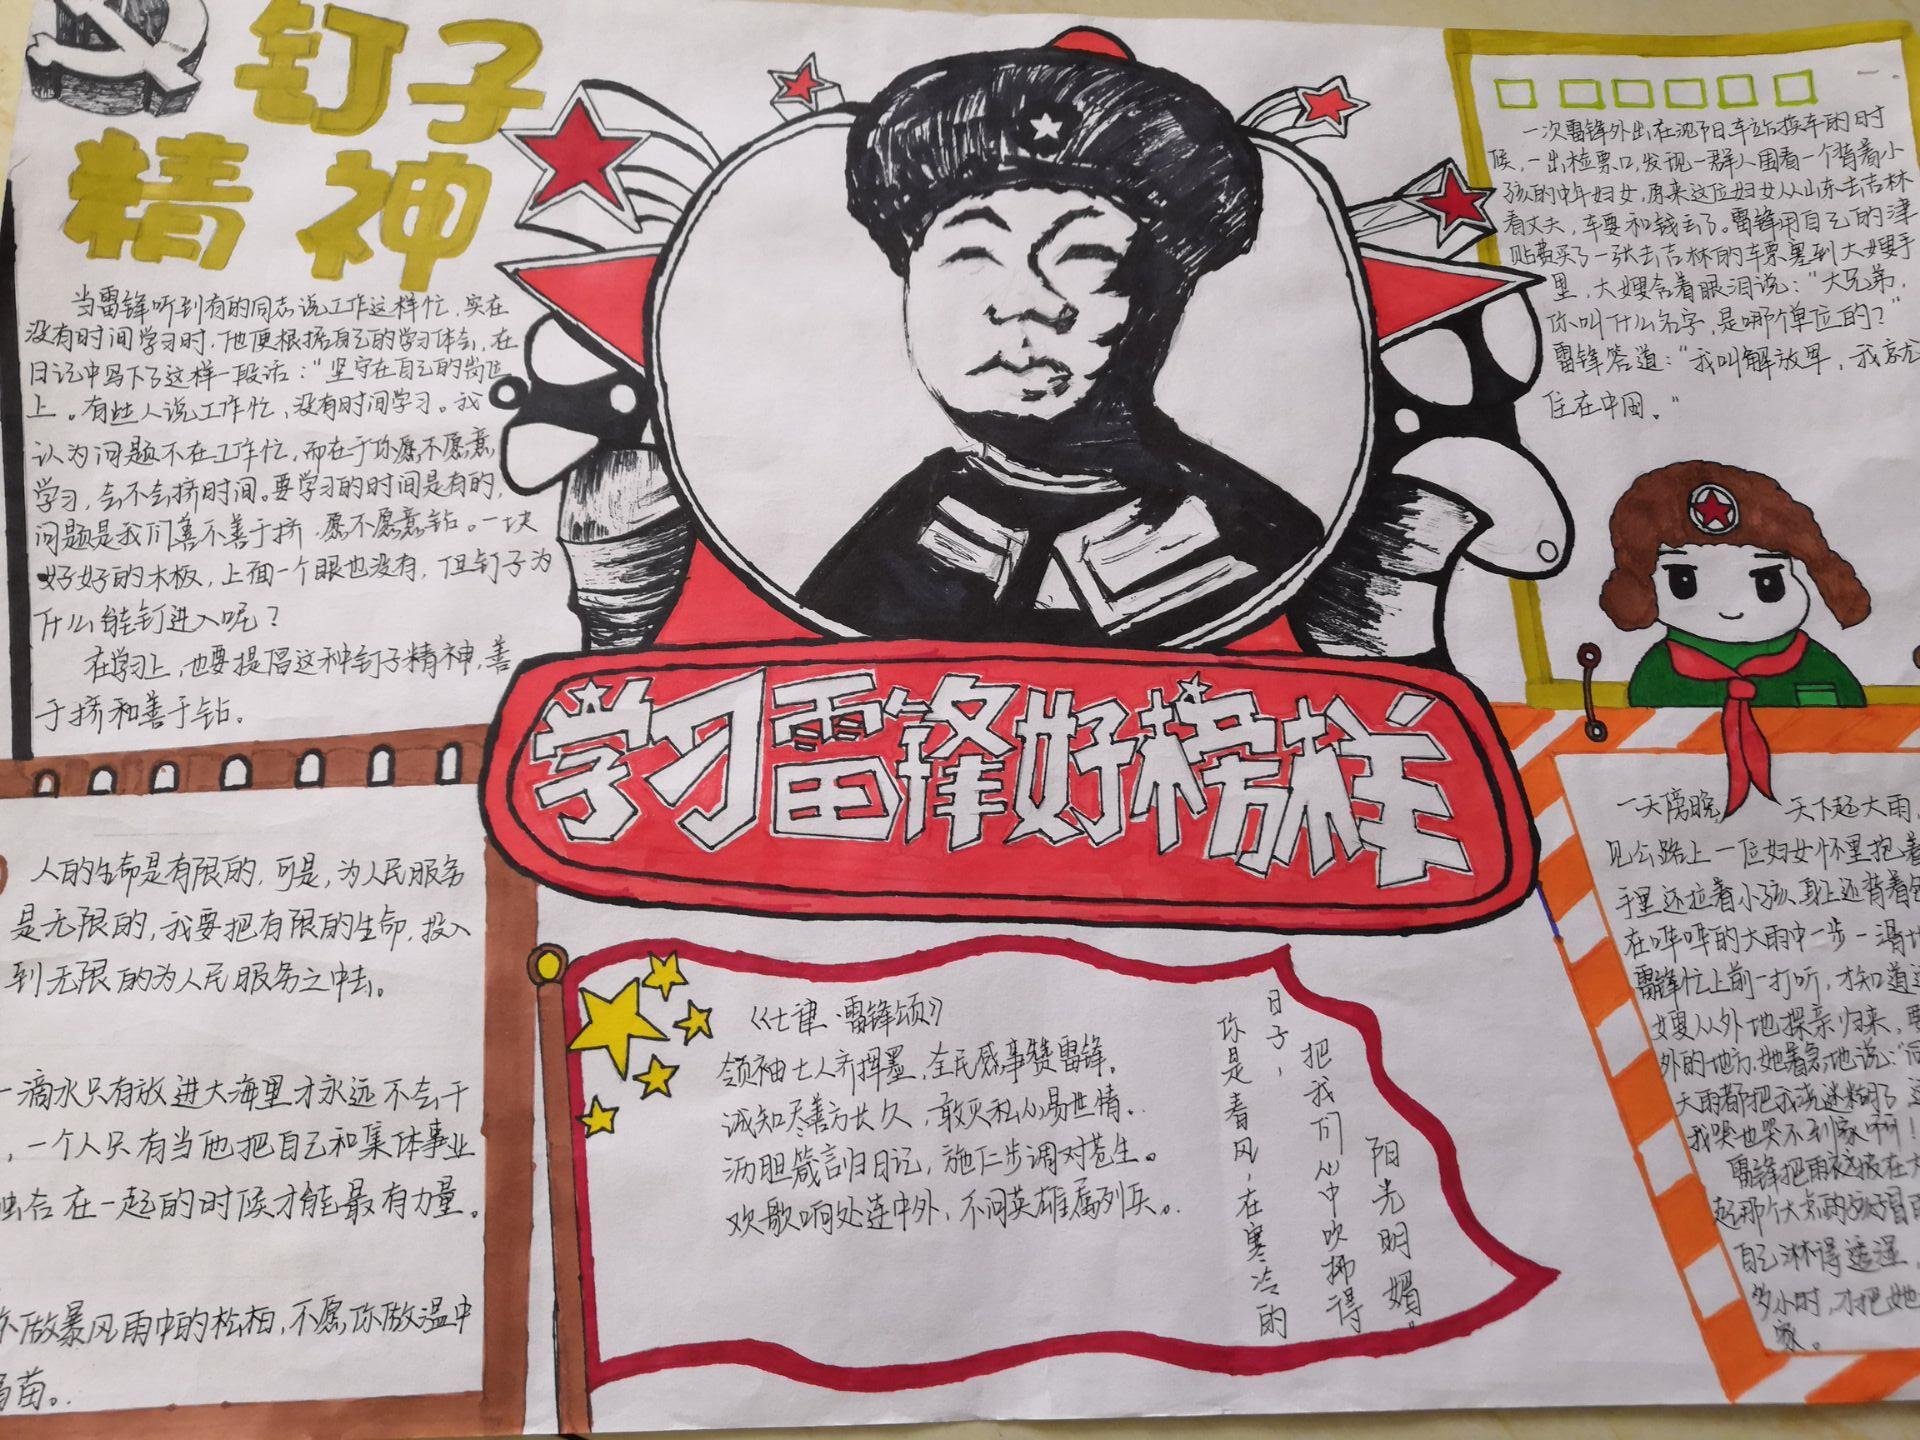 钉子
精神
当雷锋听到有的同志说工作这样忙,实在
没有时间学习时,他便根据自己的学习体会,在
日记中写下了这样一段话:"坚守在自己的岗位
上。有些人说工作忙,没有时间学习。我
认为问题不在工作忙,而在于你愿不愿意
学习,会不会挤时间。要学习的时间是有的,
问题是我们善不善于挤,愿不愿意钻。一块
好好的木板,上面一个眼也没有,但钉子为
什么能钉进入呢?
在学习上,也要提倡这种钉子精神,善
于挤和善于钻。
人的生命是有限的,可是,为人民服务
是无限的,我要把有限的生命,投入
到无限的为人民服务之中去。
一滴水只有放进大海里才永远不会干
,一个人只有当他把自己和集体事业
融合在一起的时候才能最有力量。
你做暴风雨中的松柏,不愿你做温中
苗。
学习雷锋好榜样
《七律·雷锋颂》
领袖七人齐挥墨,全民感事赞雷锋。
诚知尽善方长久,敢灭私心易世情。
沥胆箴言归日记,施仁步调对苍生。
欢歌响处连中外,不问英雄属列兵。
你是春风,在寒冷的
日子,
把我们心中吹拂得
阳光明媚。
一次雷锋外出在沈阳车站换车的时
候,一出检票口,发现一群人围看一个背着小
孩的中年妇女,原来这位妇女从山东去吉林
看丈夫,车票和钱丢了。雷锋用自己的津
贴费买了一张去吉林的车票塞到大嫂手
里,大嫂含着眼泪说:"大兄弟,
你叫什么名字,是哪个单位的?"
雷锋答道:"我叫解放军,我就
住在中国。"
一天傍晚,天下起大雨,
见公路上一位妇女怀里抱着
手里还拉着小孩,身上还背着
在哗哗的大雨中一步一滑
雷锋忙上前一打听,才知道
嫂从外地探亲归来,
外的地方,她着急地说:"
天雨都把我浇迷糊了
我哭也哭不到家啊!
雷锋把雨衣披在大
起那个大点的孩子冒
自己淋得透湿,
多小时,才把她
家。